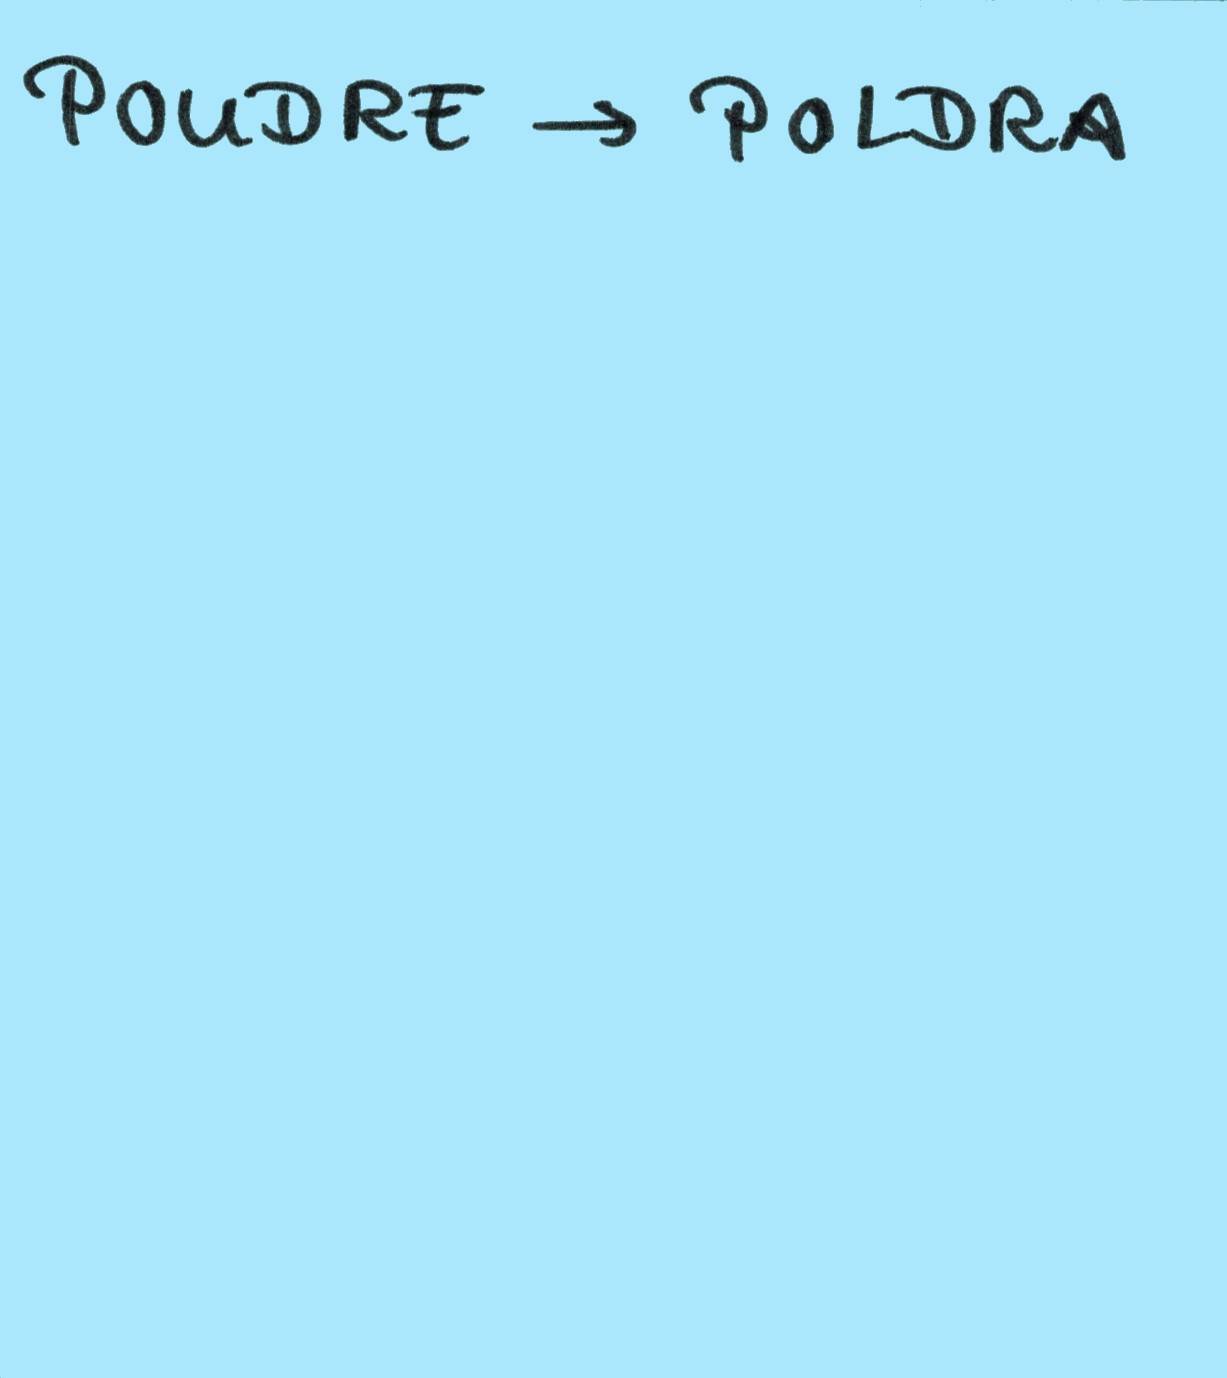 POUDRE → POLDRA